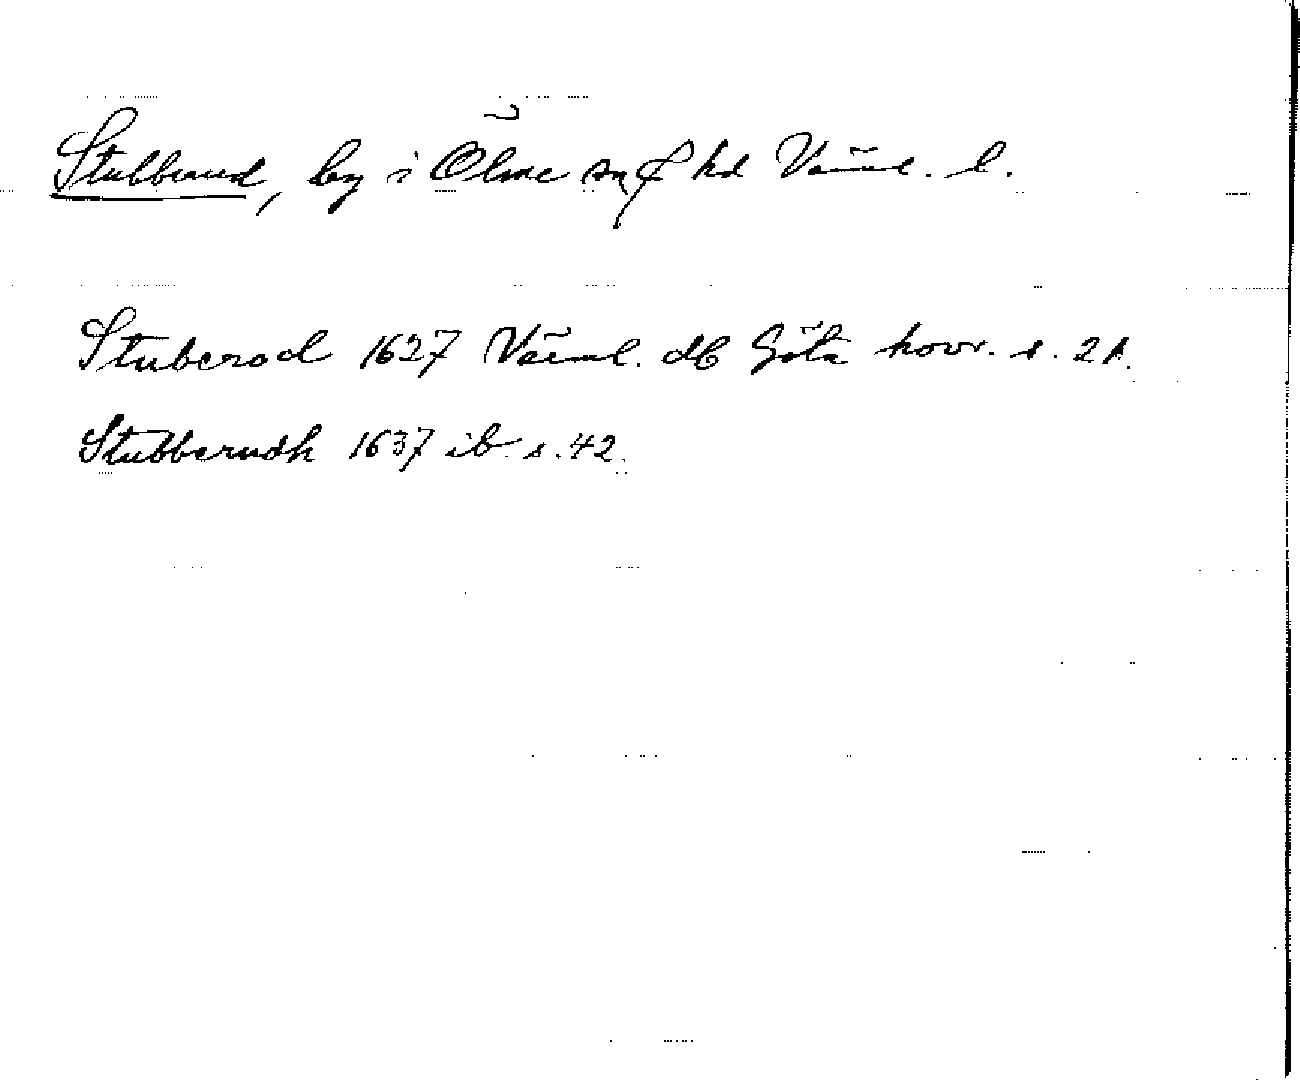 Stubberud, by i Ölme sn & hd Värml. l.
Stuberod 1627 Värml. db Göta hovr. s. 21.
Stubberudh 1637 ib s. 42.